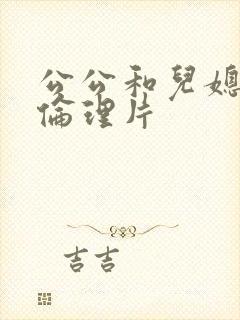 公公和兒媳
倫理片
吉吉